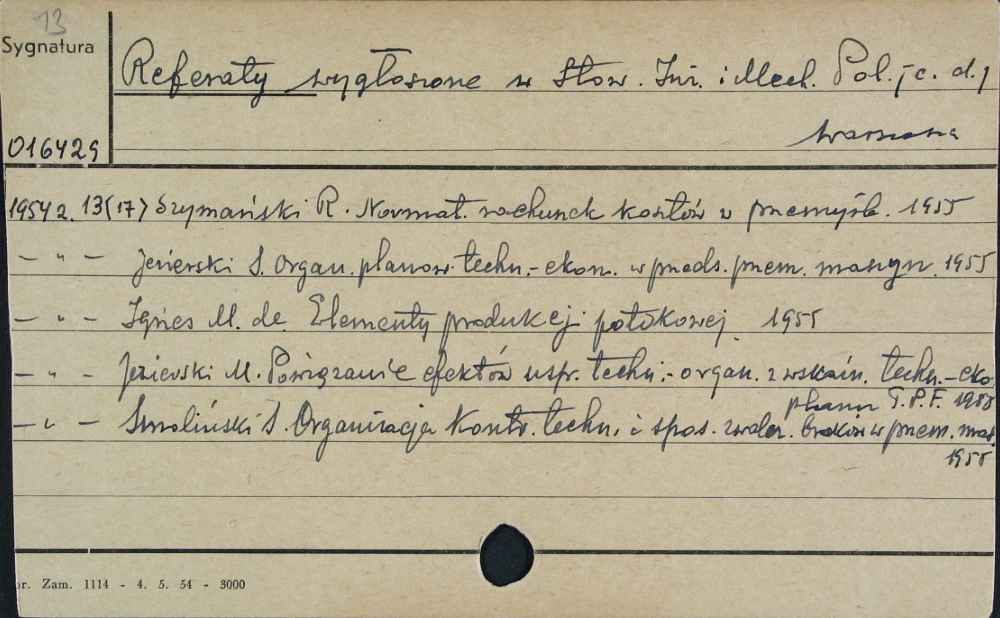 13
Sygnatura
Referaty wygłoszone w Stow. Inż. i Mech. Pol. (c. d.)
016429
Warszawa
1954 z. 13(17) Szymański R. Normat. rachunek kosztów w przemyśle. 1955
— „ — Jezierski S. Organ. planow. techn.-ekon. w przeds. przem. maszyn. 1955
— „ — M. de. Elementy produkcji potokowej. 1955
— „ — Jezierski M. Powiązanie efektów uspr. techn.-organ. z wskaźn. techn.-eko.
planu T.P.F. 1955
— „ — Smoliński S. Organizacja kontr. techn. i spos. zwalcz. braków w przem. masz.
1955
or. Zam. 1114 - 4. 5. 54 - 3000